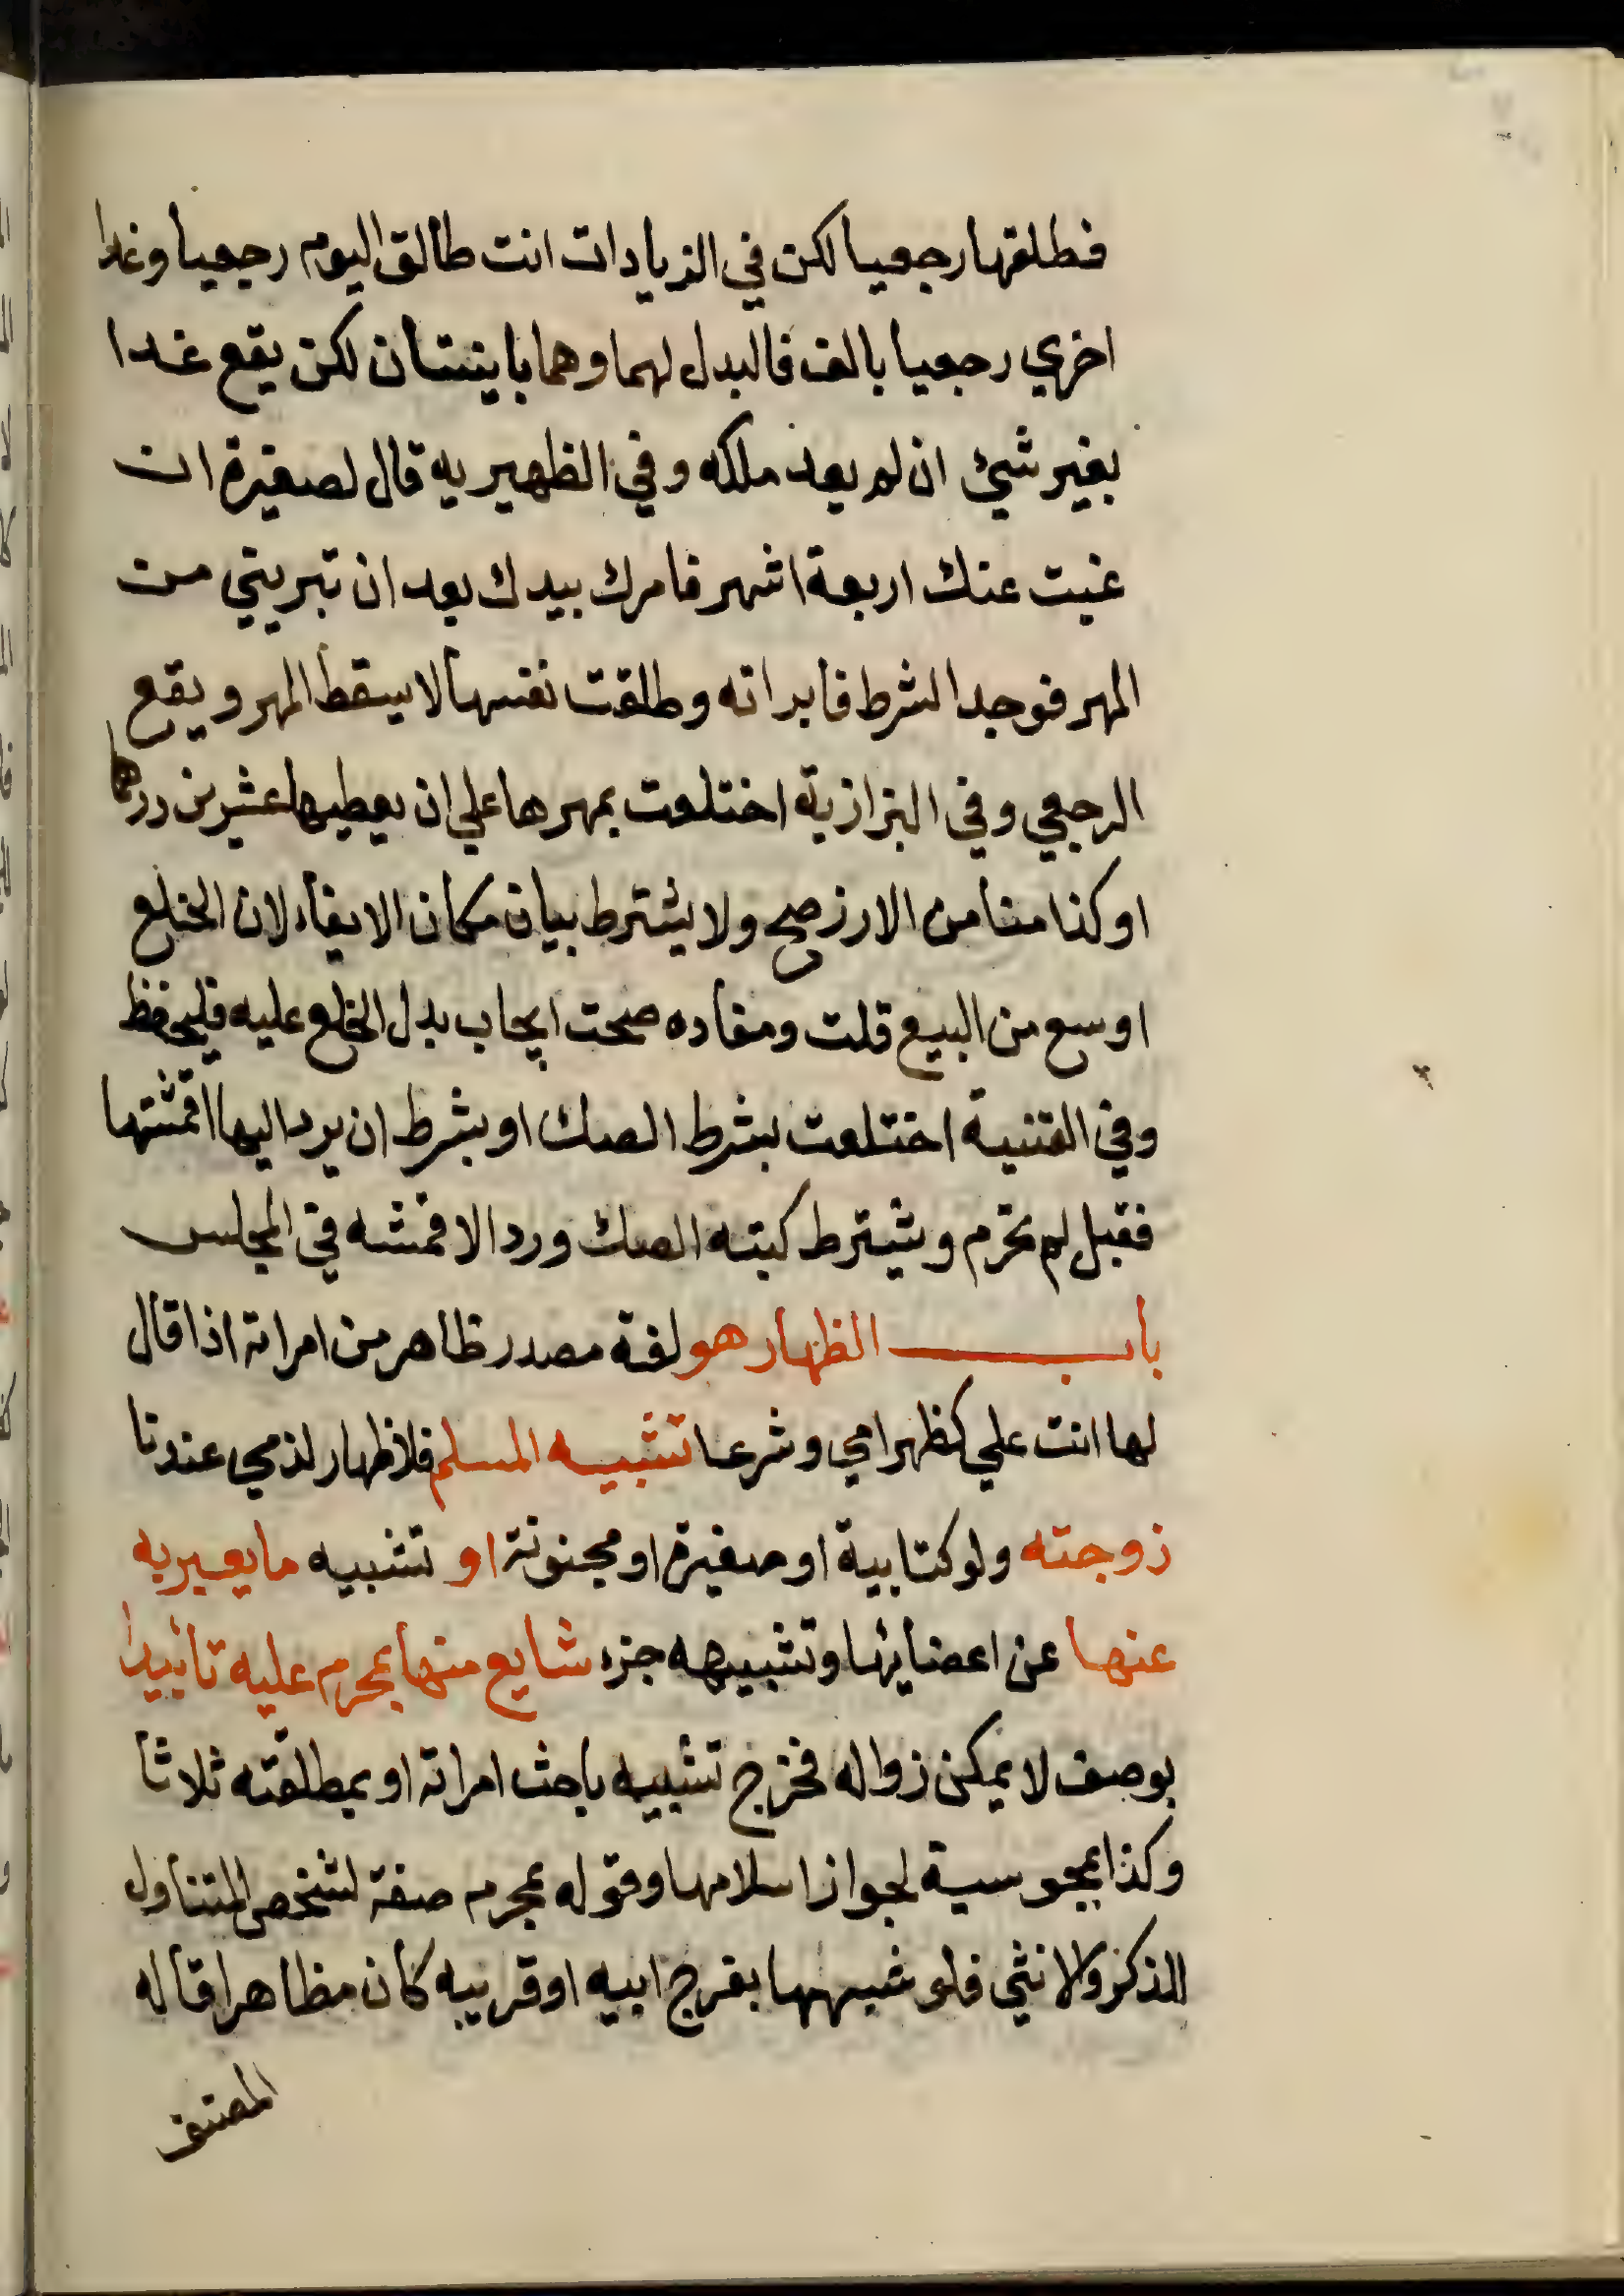 فطلقها رجعيا لكن في الزيادات انت طالق اليوم رجعيا وغدا
اخري رجعيا بالف فالبدل لهما وهما باينتان لكن يقع غدا
بغير شئ ان لم يعد ملكه وفي الظهيريه قال لصغيرة ان
غبت عنك اربعة اشهر فامرك بيدك بعد ان تبريني من
المهر فوجد الشرط فابراته وطلقت نفسها لا يسقط المهر ويقع
الرجعي وفي البزازية اختلعت بمهرها علي ان يعطيها عشرين درهما
او كذا منا من الارز صح ولا يشترط بيان مكان الايفاء لان الخلع
اوسع من البيع قلت ومفاده صحت ايجاب بدل الخلع عليه فليحفظ
وفي القنية اختلعت بشرط الصك او بشرط ان يرد اليها اقمشتها
فقبل لم تحرم ويشترط كبته الصك ورد الاقمشه في المجلس
باب الظهار هو لغة مصدر ظاهر من امراته اذا قال
لها انت علي كظهر امي وشرعا تشبيه المسلم فلا ظهار لذمي عندنا
زوجته ولو كتابية او صغيرة او مجنونة او تشبيه ما يعبر به
عنها عن اعضايها وتشبيهه جزء شايع منها بمحرم عليه تأبيدا
بوصف لا يمكن زواله فخرج تشبيه باخت امراته او بمطلقته ثلاثا
وكذا بمجوسية لجواز اسلامها وقوله بمحرم صفة لشخص المتناول
الذكر والانثي فلو شبهها بفرج ابيه او قريبه كان مظاهرا قاله
المصنف